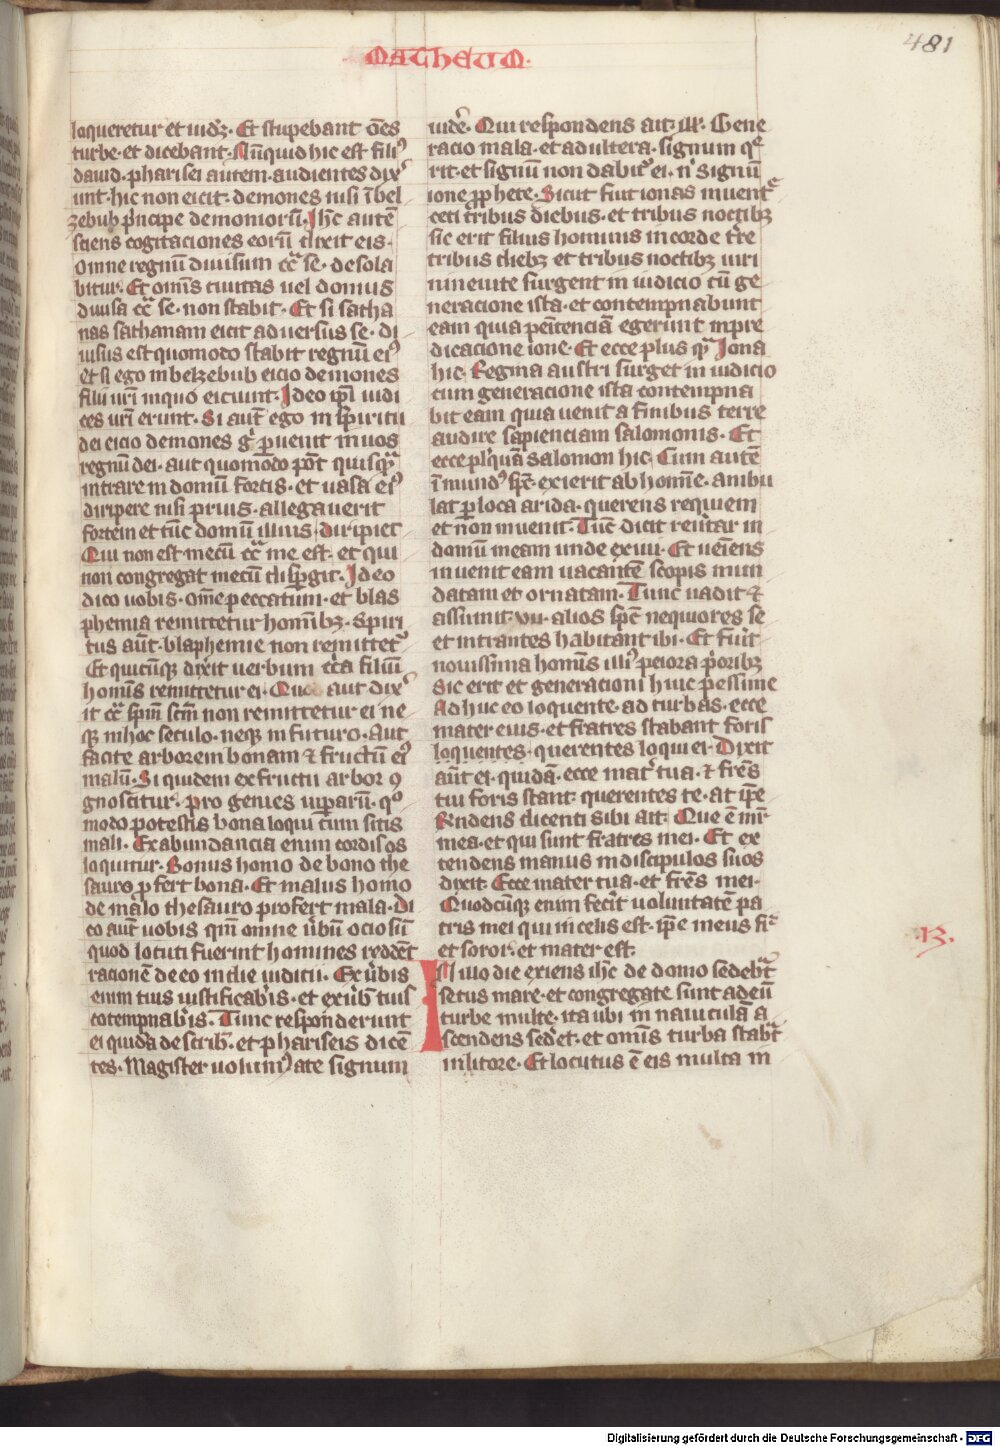 MATHEUM.
481
loqueretur et uid&ꝫ. Et stupebant o̅es
turbe. et dicebant. Nu̅quid hic est fili᷒
dauid. pharisei autem. audientes dix᷒
unt. hic non eicit. demones nisi i̅ bel
zebub p̍ncipe demonioru̅. Ih̅c aute̅
sciens cogitaciones eoru̅ dixit eis.
Omne regnu̅ diuisum cͣ se. desola
bitur. Et om̅s ciuitas uel domus
diuisa cͣ se. non stabit. Et si satha
nas sathanam eicit aduersus se. di
uisus est quomodo stabit regnu̅ ei᷒
et si ego in belzebub eicio demones
filii ur̅i in quo eiciunt. Ideo ip̅i iudi
ces ur̅i erunt. Si aut̅ ego in spiritu
dei eicio demones gͦ ꝑuenit in uos
regnu̅ dei. aut quomo̅do po̅t quisqͣ̅
intrare in domu̅ fortis. et uasa ei᷒
diripere nisi prius. allegauerit
fortem et tu̅c domu̅ illius. diripiet
Qui non est mecu̅ cͣ me est. et qui
non congregat mecu̅ disꝑgit. Ideo
dico uobis. om̅e peccatum. et blas
phemia remittetur hom̅ibꝫ. Spiri
tus au̅t. blasphemie non remittet᷒
Et quicu̅qꝫ dixit uerbum cͣ filiu̅
hom̅is remittetur ei. Qui aut dix᷒
it cͣ sp̅m sc̅m non remittetur ei ne
qꝫ in hoc seculo. neqꝫ in futuro. Aut
facite arborem bonam ⁊ fructu̅ ei᷒
malu̅. Siquidem ex fructu arbor ꝯ
gnoscitur. pro genies uiparu̅. qͦ
modo potestis bona loqui cum sitis
mali. Ex abundancia enim cordis os
loquitur. Bonus homo de bono the
sauro ꝓfert bona. Et malus homo
de malo thesauro profert mala. Di
co aut̅ uobis qm̅ omne u̍bu̅ ociosu̅
quod locuti fuerint homines redde̅t
racione̅ de eo in die iudicii. Ex u̍bis
enim tuis iustificab̍is. et ex u̍b̅ tuis
co̅tempnab̍is. Tunc responderunt
ei quida̅ de scrib̅. et phariseis dice̅
tes. Magister uolum᷒ a te signum
uide̍. Qui respondens ait. ill̅. Gene
racio mala. et adultera. signum qͤ
rit. et signu̅ non dabit᷒ ei. n̍ signu̅
ione ꝓphete. Sicut fuit ionas in uentͤ
ceti tribus diebus. et tribus noctibꝫ
sic erit filius hominis in corde tr̅e
tribus diebꝫ et tribus noctibꝫ uiri
niniuite surgent in iudicio cu̅ ge
neracione ista. et contempnabunt
eam quia pe̅itencia̅ egerunt in pre
dicacione ione. Et ecce plus qͣ̅ Iona
hic. Regina austri surget in iudicio
cum generacione ista contempna
bit eam quia uenit a finibus terre
audire sapienciam salomonis. Et
ecce pl᷒ qua̅ Salomon hic. Cum aute̅
i̅mund᷒ sp̅c. exierit ab hom̅e. ambu
lat ꝑ loca arida. querens requiem
et non inuenit. Tunc dicit reu̍tar in
domu̅ meam unde exiui. Et ue̅iens
inuenit eam uacante̅ scopis mun
datam et ornatam. Tunc uadit ⁊
assumit. vii. alios sp̅c nequiores se
et intrantes habitant ibi. Et fiu̍t
nouissima homi̅s illi᷒ peiora p̍oribꝫ
Sic erit et generacioni huic pessime
Adhuc eo loquente. ad turbas. ecce
mater eius. et fratres stabant foris
loquentes. querentes loqui ei. Dixit
au̅t ei. quida̅. ecce mat̍ tua. ⁊ fr̅es
tui foris stant. querentes te. at ip̅e
R̅ndens dicenti sibi ait. Que e̅ mr̅
mea. et qui sunt fratres mei. Et ex
tendens manus in discipulos suos
dixit. Ecce mater tua. et fr̅es mei.
Quodcu̅qꝫ enim fecit̍ uoluntate̅ pa
tris mei qui in celis est. ip̅e meus fͬ
et soror. et mater est.
.13.
IN illo die exiens ih̅c de domo sedebͣt
secus mare. et congregate sunt ad eu̅
turbe multe. ita ubi in nauicula̅ a
scendens sed̍et. et omi̅s turba stabͣt
in litore. Et locutus e̅ eis multa in
Digitalisierung gefördert durch die Deutsche Forschungsgemeinschaft - DFG